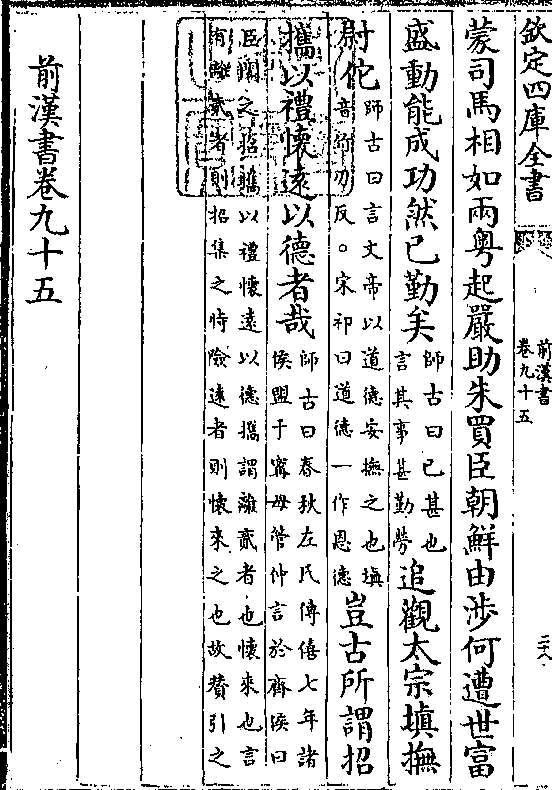 欽定四庫全書
前漢書
卷九十五
二十八
蒙司馬相如兩粤起嚴助朱買臣朝鮮由涉何遭世富
盛動能成功然已勤矣
師古曰已甚也
言其事甚勤勞
追觀太宗填撫
尉佗
師古曰言文帝以道德安撫之也填
音竹刃反。宋祁曰道德一作恩德
豈古所謂招
攜以禮懷遠以德者哉
師古曰春秋左氏傳僖七年諸
侯盟于甯母管仲言於齊侯曰
臣聞之招攜以禮懷遠以德攜謂離貳者也懷來也言
有離貳者則招集之恃險遠者則懷來之也故贊引之
前漢書卷九十五